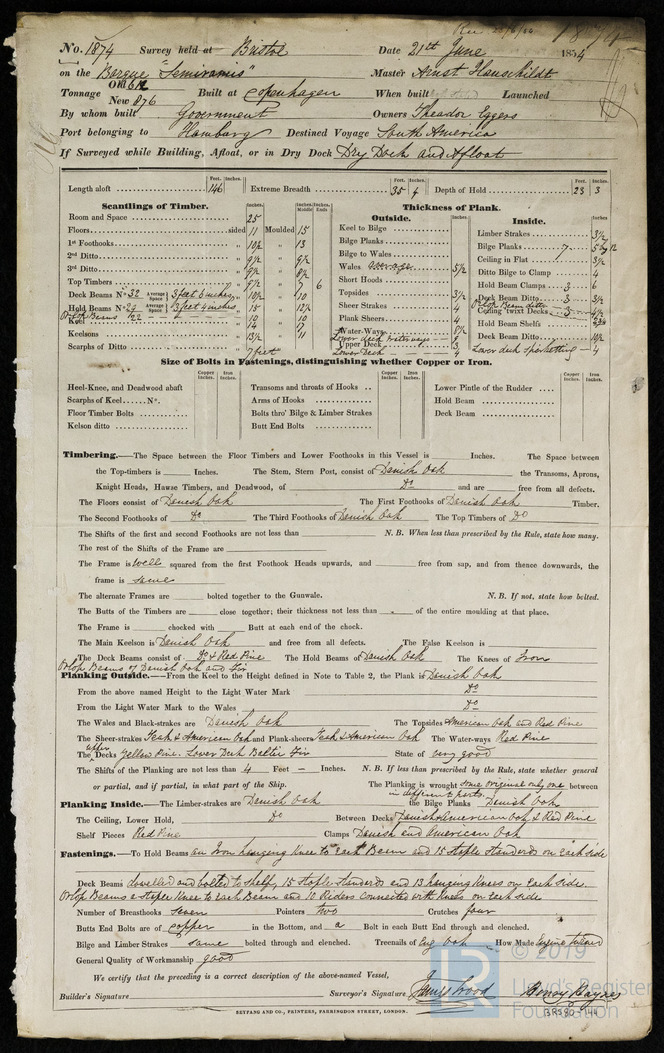 No. 1874 Survey held at Bristol Date 21st June 1854
on the Barque "Semiramis" Master Arnst Hauschildt
Tonnage Old 612 New 876 Built at Copenhagen When built Launched
By whom built Government Owners Theador Eggers
Port belonging to Hamburg Destined Voyage South America
If Surveyed while Building, Afloat, or in Dry Dock Dry Dock and Afloat
Feet. Inches. Feet. Inches. Feet. Inches.
Length aloft 146 Extreme Breadth 35 4 Depth of Hold 23 3
Scantlings of Timber.
Inches. Inches. Moulded Inches. Ends
Room and Space 25
Floors sided 11 Moulded 15
1st Foothooks 10½ " 13
2nd Ditto 9½ " 9½
3rd Ditto 9½ " 8½
Top Timbers 9½ " 7 6
Deck Beams No. 32 Average Space 3 feet 6 inches 10½ " 10
Hold Beams No. 29 Average Space 3 feet 4 inches 15 " 12½
Orlop Beams 22 10 10
Keel 14 " 17
Keelsons 13½ " 11
Scarphs of Ditto 7 feet
Thickness of Plank.
Outside.
Inches.
Keel to Bilge
Bilge Planks
Bilge to Wales
Wales average 5½
Short Hoods
Topsides 3½
Sheer Strakes 4
Plank Sheers 4
Water-Ways 8½
Lower deck waterways 9
Upper Deck 3
Lower Deck 4
Inside.
Inches.
Limber Strakes 3½
Bilge Planks 7 5 by 12
Ceiling in Flat 3½
Ditto Bilge to Clamp 4
Hold Beam Clamps 3 6
Deck Beam Ditto 3 3½
Orlop Beam ditto
Ceiling 'twixt Decks 3
Hold Beam Shelfs
Deck Beam Ditto 10½
Lower deck Spirketting 4
Size of Bolts in Fastenings, distinguishing whether Copper or Iron.
Copper Inches. Iron Inches. Copper Inches. Iron Inches. Copper Inches. Iron Inches.
Heel-Knee, and Deadwood abaft Transoms and throats of Hooks Lower Pintle of the Rudder
Scarphs of Keel No. Arms of Hooks Hold Beam
Floor Timber Bolts Bolts thro' Bilge & Limber Strakes Deck Beam
Kelson ditto Butt End Bolts
Timbering.—The Space between the Floor Timbers and Lower Foothooks in this Vessel is Inches. The Space between
the Top-timbers is Inches. The Stem, Stern Post, consist of Danish Oak the Transoms, Aprons,
Knight Heads, Hawse Timbers, and Deadwood, of Do and are free from all defects.
The Floors consist of Danish Oak The First Foothooks of Danish Oak Timber.
The Second Foothooks of Do The Third Foothooks of Danish Oak The Top Timbers of Do
The Shifts of the first and second Foothooks are not less than N.B. When less than prescribed by the Rule, state how many.
The rest of the Shifts of the Frame are
The Frame is well squared from the first Foothook Heads upwards, and free from sap, and from thence downwards, the
frame is same
The alternate Frames are bolted together to the Gunwale. N.B. If not, state how bolted.
The Butts of the Timbers are close together; their thickness not less than of the entire moulding at that place.
The Frame is chocked with Butt at each end of the chock.
The Main Keelson is Danish Oak and free from all defects. The False Keelson is
The Deck Beams consist of Do & Red Pine The Hold Beams of Danish Oak The Knees of Iron
Orlop Beams of Danish Oak and Fir
Planking Outside.—From the Keel to the Height defined in Note to Table 2, the Plank is Danish Oak
From the above named Height to the Light Water Mark Do
From the Light Water Mark to the Wales Do
The Wales and Black-strakes are Danish Oak The Topsides American Oak and Red Pine
The Sheer-strakes Teak & American Oak and Plank-sheers Teak & American Oak The Water-ways Red Pine
The upper Decks Yellow Pine. Lower Deck Baltic Fir State of very good
The Shifts of the Planking are not less than 4 Feet — Inches. N.B. If less than prescribed by the Rule, state whether general
or partial, and if partial, in what part of the Ship. The Planking is wrought some original only one between
in different parts.
Planking Inside.—The Limber-strakes are Danish Oak the Bilge Planks Danish Oak
The Ceiling, Lower Hold, Do Between Decks Danish & American Oak & Red Pine
Shelf Pieces Red Pine Clamps Danish and American Oak
Fastenings.—To Hold Beams an Iron hanging Knee to Each Beam and 15 Staple Standerds on Each side
Deck Beams dovelled and bolted to shelf, 15 Staple Standerds and 13 hanging Knees on Each side.
Orlop Beams a staple Knee to Each Beam and 10 Riders Connected with Knees on Each side
Number of Breasthooks seven Pointers two Crutches four
Butts End Bolts are of copper in the Bottom, and a Bolt in each Butt End through and clenched.
Bilge and Limber Strakes same bolted through and clenched. Treenails of Eng Oak How Made Engine turned
General Quality of Workmanship good
We certify that the preceding is a correct description of the above-named Vessel,
Builder's Signature Surveyor's Signature James Wood Henry Haynes
BRS80-144
SEYFANG AND CO., PRINTERS, FARRINGDON STREET, LONDON.
LR © 2019
Lloyd's Register
Foundation